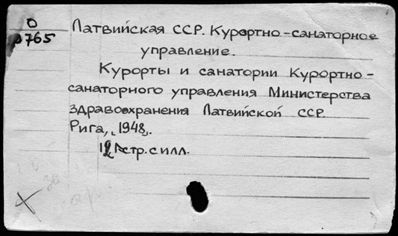 О
р765
Латвийская ССР. Курортно-санаторное
управление.
Курорты и санатории Курортно-
санаторного управления Министерства
здравоохранения Латвийской ССР.
Рига, 1948.
стр. с илл.